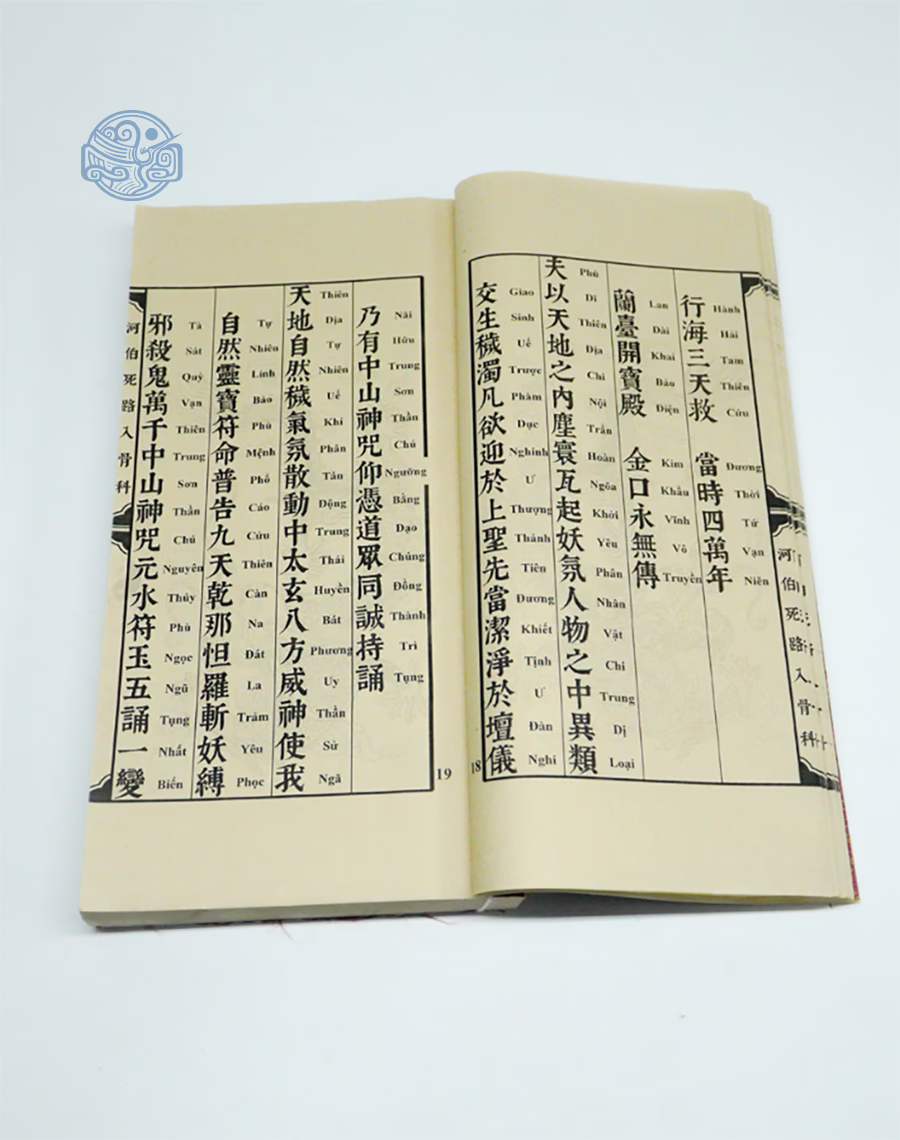 河伯死路入骨科
行海三天救 當時四萬年
Hành Hải Tam Thiên Cứu Đương Thời Tứ Vạn Niên
蘭臺開寶殿 金口永無傳
Lan Đài Khai Bảo Điện Kim Khẩu Vĩnh Vô Truyền
夫以天地之內塵寰瓦起妖氛人物之中異類
Phù Dĩ Thiên Địa Chi Nội Trần Hoàn Ngõa Khởi Yêu Phân Nhân Vật Chi Trung Dị Loại
交生穢濁凡欲迎於上聖先當潔淨於壇儀
Giao Sinh Uế Trược Phàm Dục Nghinh Ư Thượng Thánh Tiên Đương Khiết Tịnh Ư Đàn Nghi
18
乃有中山神咒仰憑道眾同誠持誦
Nãi Hữu Trung Sơn Thần Chú Ngưỡng Bằng Đạo Chúng Đồng Thành Trì Tụng
天地自然穢氣氛散動中太玄八方威神使我
Thiên Địa Tự Nhiên Uế Khí Phân Tán Động Trung Thái Huyền Bát Phương Uy Thần Sử Ngã
自然靈寶符命普告九天乾那怛羅斬妖縛
Tự Nhiên Linh Bảo Phù Mệnh Phổ Cáo Cửu Thiên Càn Na Đát La Trảm Yêu Phọc
邪殺鬼萬千中山神咒元水符玉五誦一變
Tà Sát Quỷ Vạn Thiên Trung Sơn Thần Chú Nguyên Thủy Phù Ngọc Ngũ Tụng Nhất Biến
河伯死路入骨科
19